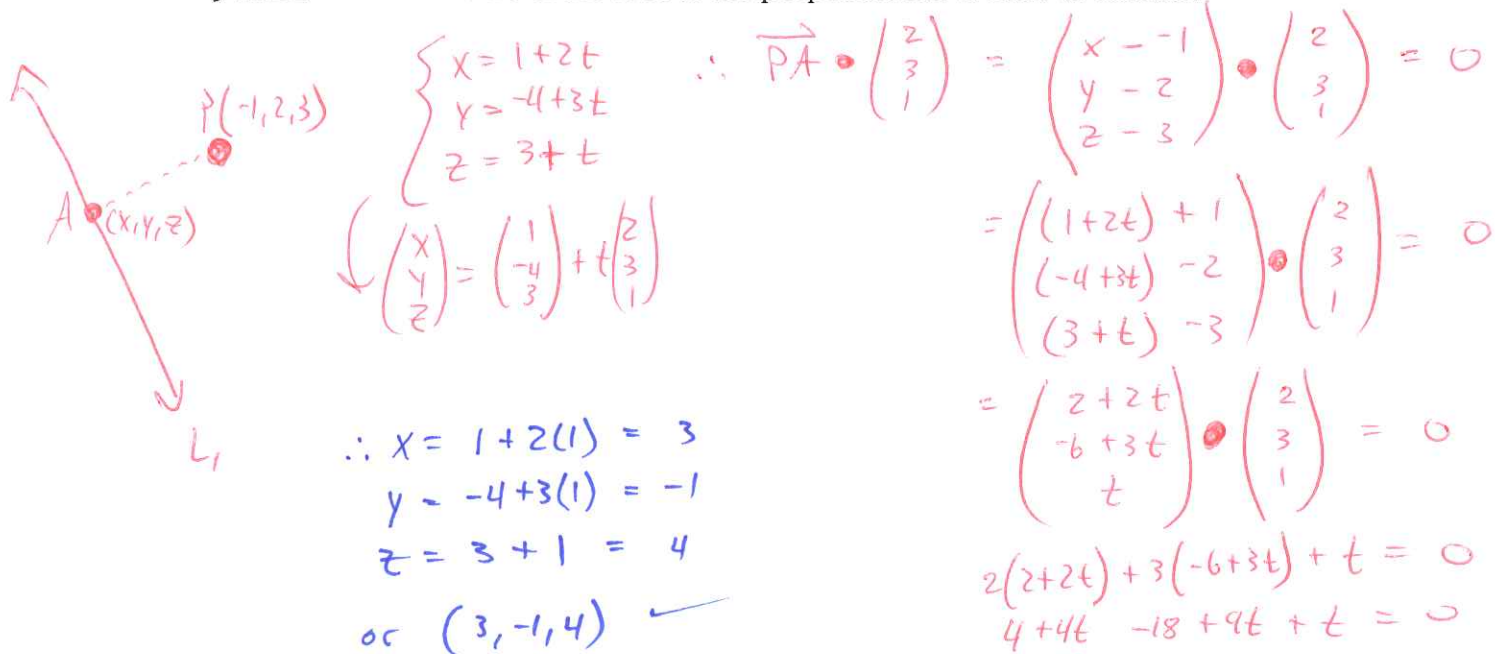 P(-1,2,3)
A (x,y,z)
L₁
{ x = 1+2t
y = -4+3t
z = 3+t
(x y z) = (1 -4 3) + t(2 3 1)
∴ x = 1+2(1) = 3
y = -4+3(1) = -1
z = 3 + 1 = 4
or (3,-1,4) ✓
∴ PA • (2 3 1) = (x - -1 y - 2 z - 3) • (2 3 1) = 0
= ((1+2t) + 1 (-4+3t) -2 (3+t) -3) • (2 3 1) = 0
= (2+2t -6+3t t) • (2 3 1) = 0
2(2+2t) + 3(-6+3t) + t = 0
4+4t -18 +9t + t = 0